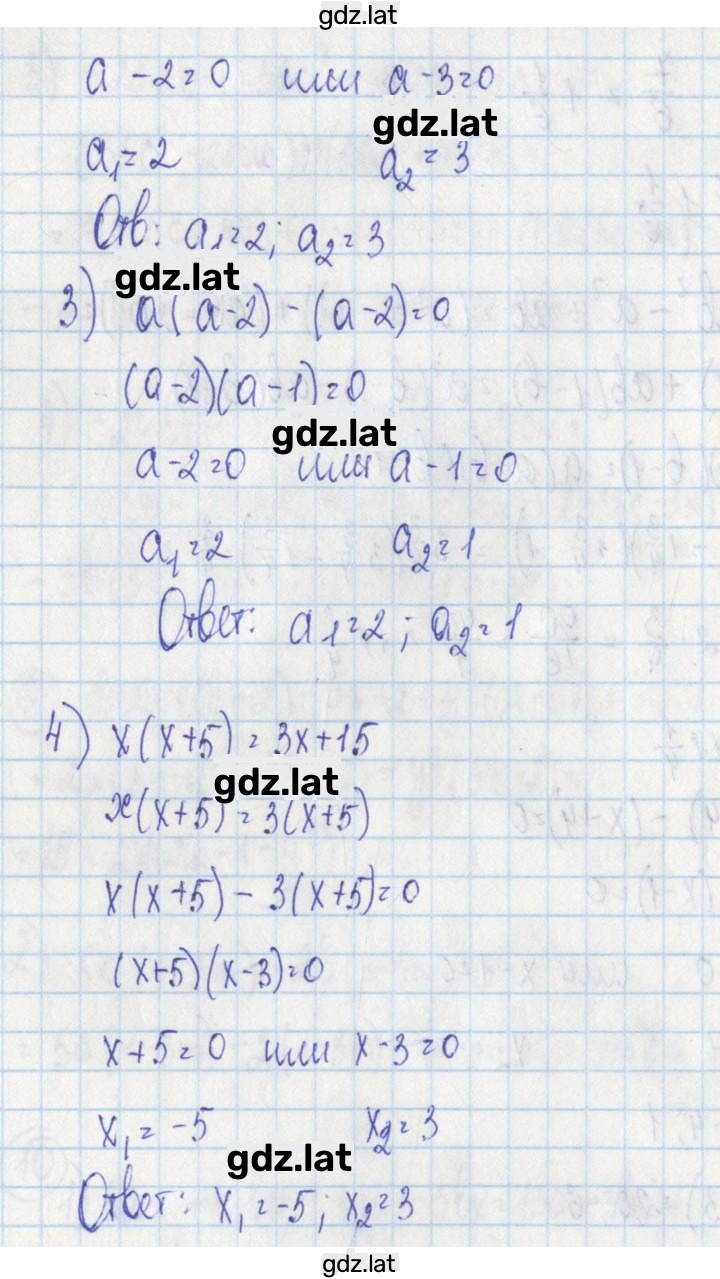 gdz.lat
a - 2 = 0 или a - 3 = 0
gdz.lat
a₁ = 2 a₂ = 3
Отв: a₁ = 2; a₂ = 3
gdz.lat
3) a(a-2) - (a-2) = 0
(a-2)(a-1) = 0
gdz.lat
a - 2 = 0 или a - 1 = 0
a₁ = 2 a₂ = 1
Ответ: a₁ = 2; a₂ = 1
4) x(x+5) = 3x + 15
gdz.lat
x(x+5) = 3(x+5)
x(x+5) - 3(x+5) = 0
(x+5)(x-3) = 0
x + 5 = 0 или x - 3 = 0
x₁ = -5 x₂ = 3
gdz.lat
Ответ: x₁ = -5; x₂ = 3
gdz.lat